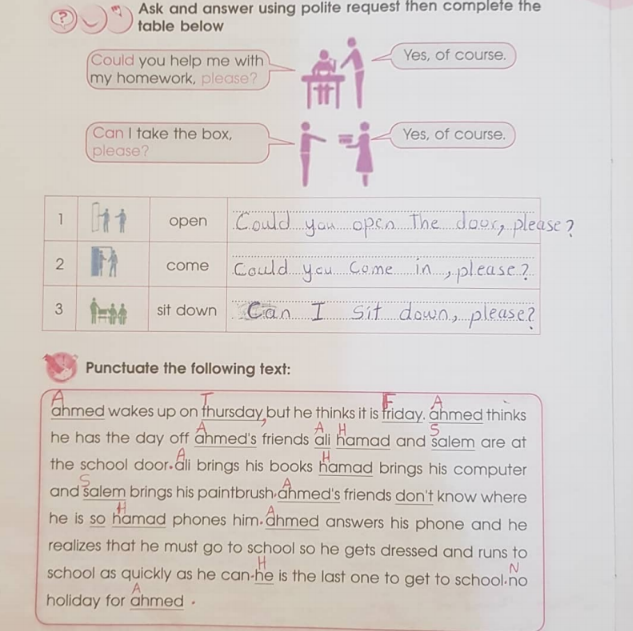 Ask and answer using polite request then complete the
table below
Could you help me with
my homework, please?
Yes, of course.
Can I take the box,
please?
Yes, of course.
1 open Could you open The door, please?
2 come Could you Come in, please?
3 sit down Can I Sit down, please?
Punctuate the following text:
A T F A
ahmed wakes up on thursday, but he thinks it is friday. ahmed thinks
A A H S
he has the day off ahmed's friends ali hamad and salem are at
A H
the school door. ali brings his books hamad brings his computer
S A
and salem brings his paintbrush. ahmed's friends don't know where
H A
he is so hamad phones him. ahmed answers his phone and he
realizes that he must go to school so he gets dressed and runs to
H N
school as quickly as he can-he is the last one to get to school.no
A
holiday for ahmed .